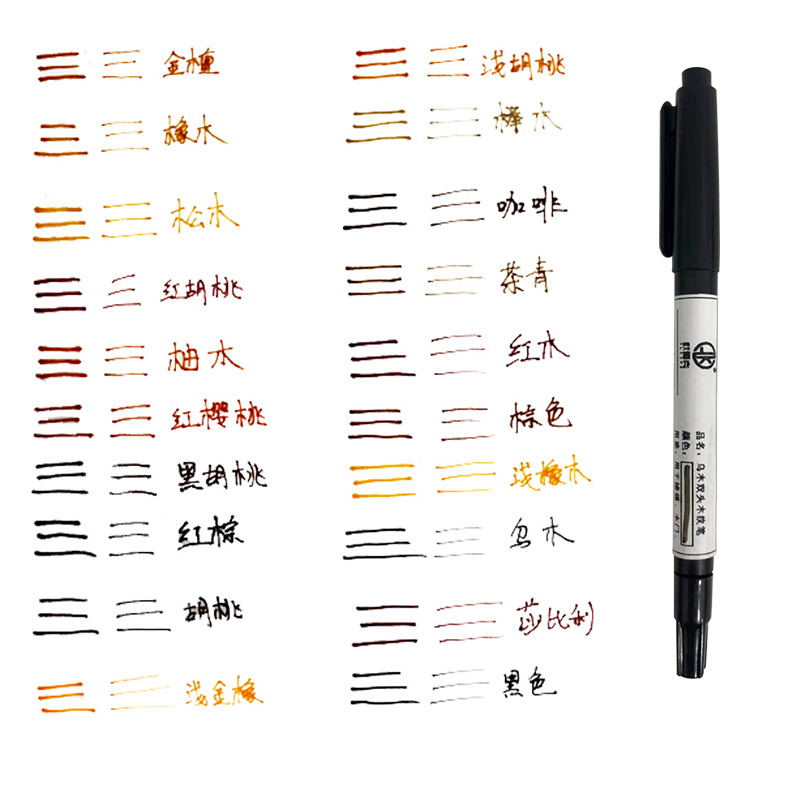 金檀
橡木
松木
红胡桃
柚木
红樱桃
黑胡桃
红棕
胡桃
浅金橡
浅胡桃
榉木
咖啡
茶青
红木
棕色
浅橡木
乌木
莎比利
黑色
JK
品名：乌木双头木纹笔
颜色：